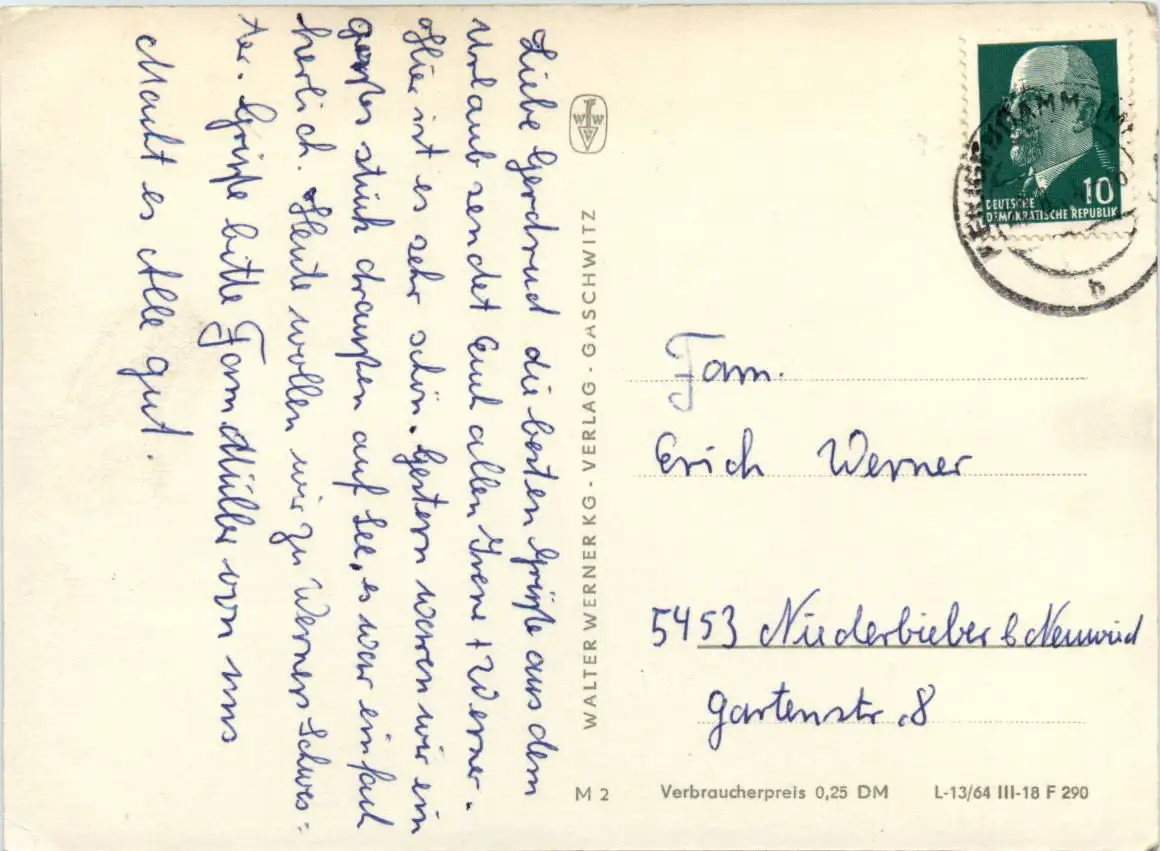 Liebe Gerdrud die besten Grüße aus dem
Urlaub sendet Euch allen Irene + Werner.
Hier ist es sehr schön. Gestern waren wir ein
großes stück draußen auf See, es war einfach
herlich. Heute wollen wir zu Werners Schwes=
ter. Grüße bitte Fam. Müller von uns
Macht es Alle gut.
WALTER WERNER KG - VERLAG - GASCHWITZ
DEUTSCHE
DEMOKRATISCHE REPUBLIK
10
b
Fam.
Erich Werner
5453 Niederbieber b Neuwied
Gartenstr. 8
M 2 Verbraucherpreis 0,25 DM L-13/64 III-18 F 290